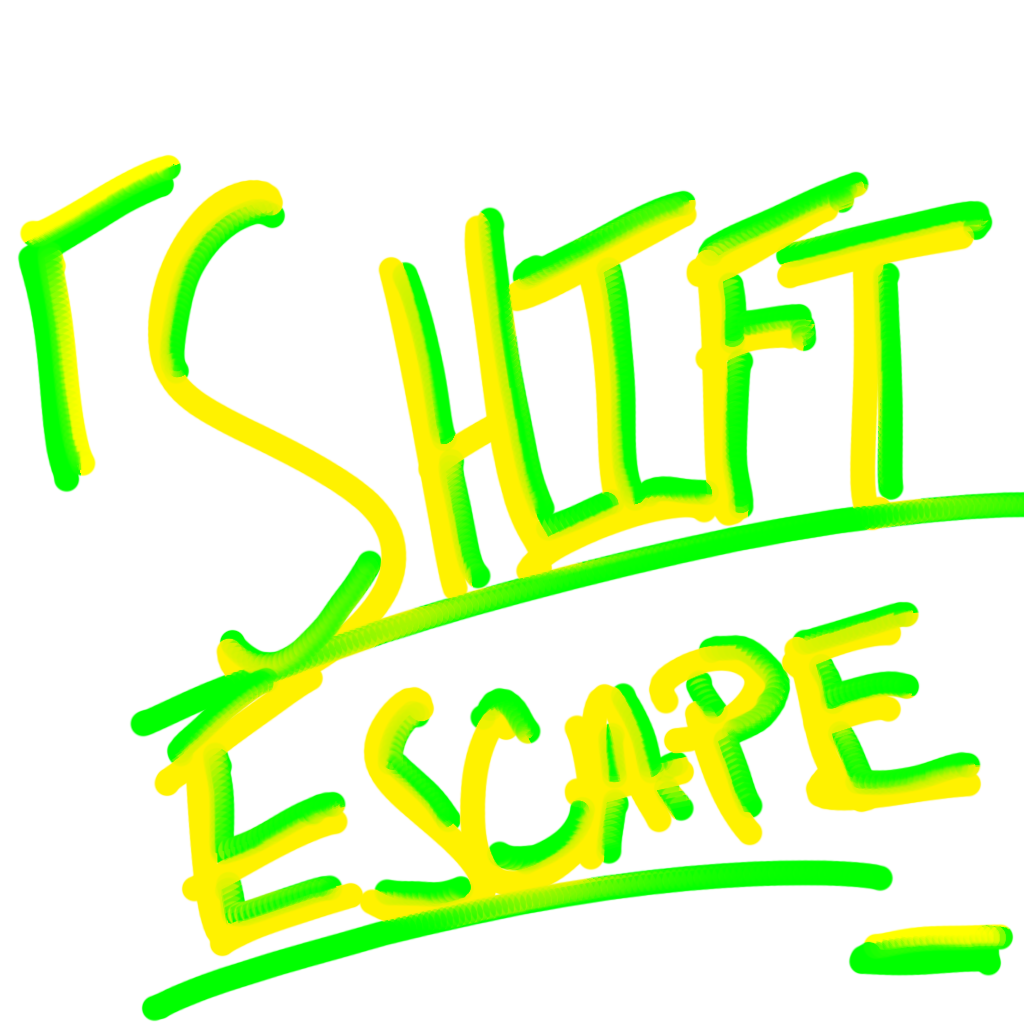 「SHIFT
ESCAPE